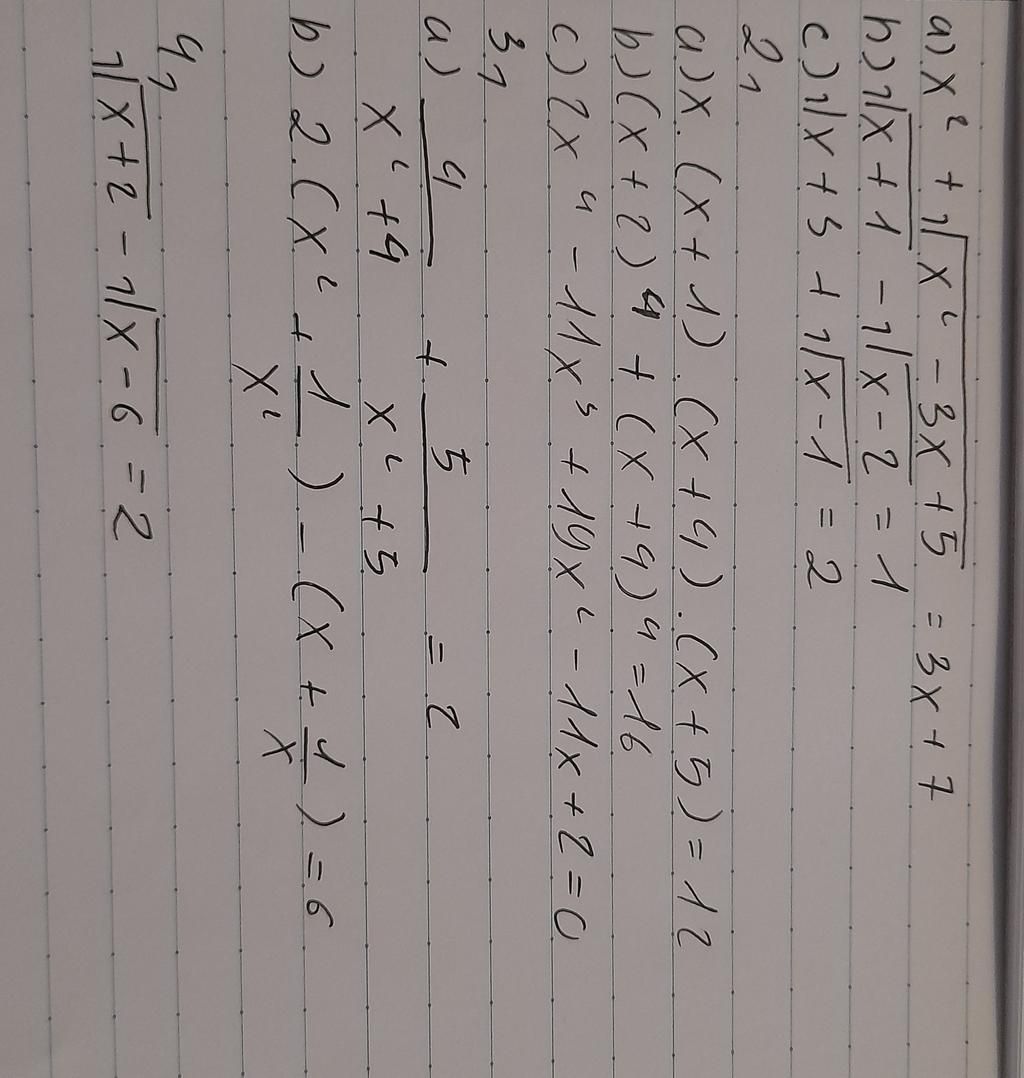 a) x² + √(x² - 3x + 5) = 3x + 7
b) √(x + 1) - √(x - 2) = 1
c) √(x + 3) + √(x - 1) = 2
2,
a) x. (x + 1). (x + 4). (x + 5) = 12
b) (x + 2)⁴ + (x + 4)⁴ = 16
c) 2x⁴ - 11x³ + 19x² - 11x + 2 = 0
3,
a) 4/(x² + 4) + 5/(x² + 5) = 2
b) 2. (x² + 1/x²) - (x + 1/x) = 6
4,
√(x + 2) - √(x - 6) = 2